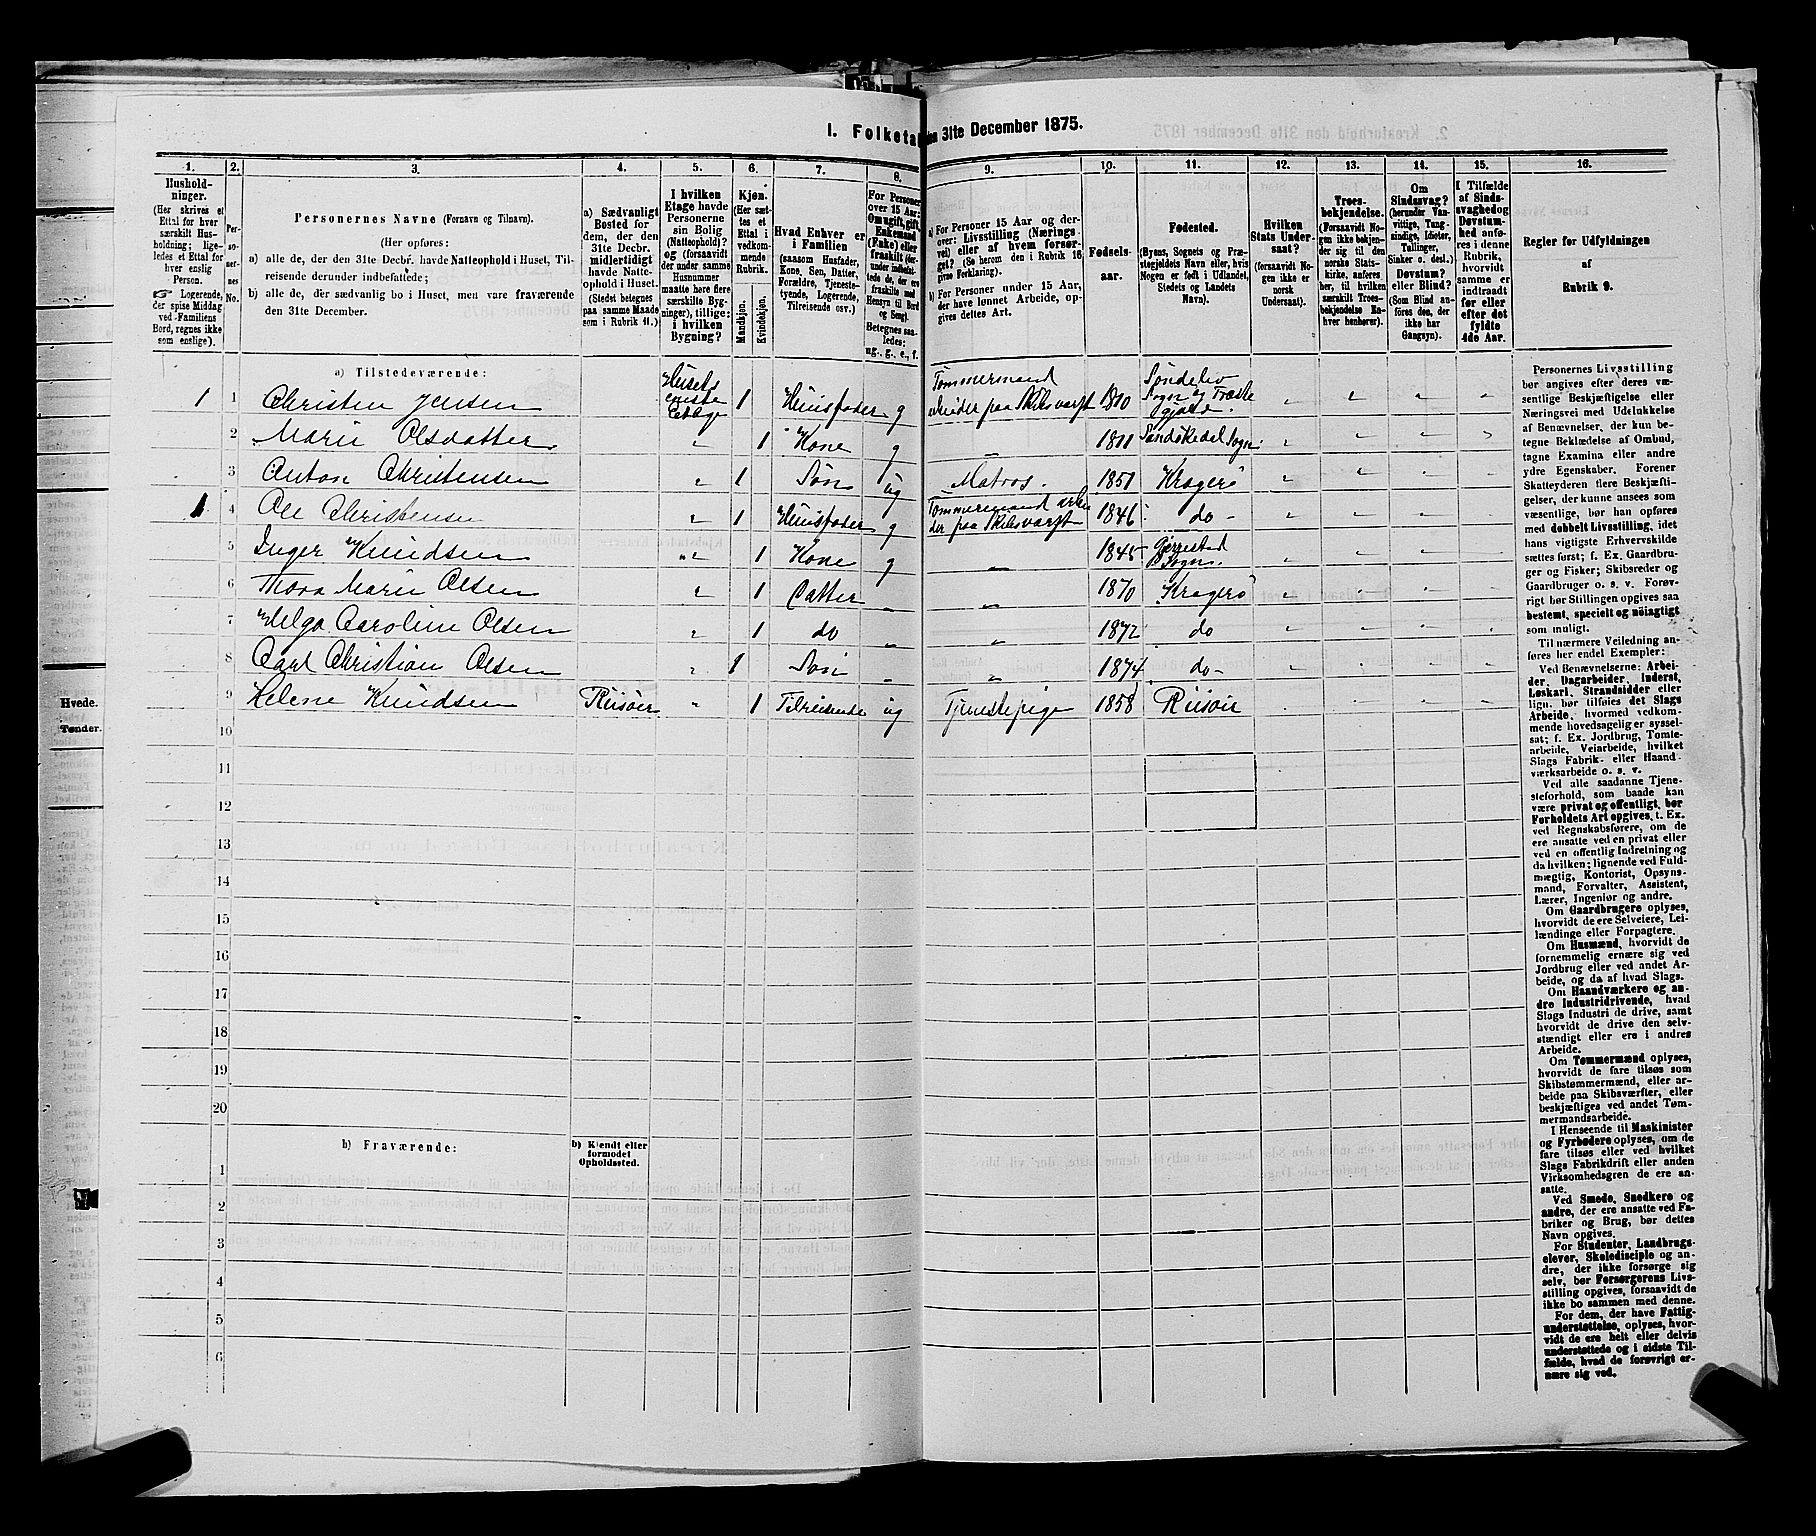 I. Folketa
den 31te December 1875.
1.
2.
3.
4.
5.
6.
7.
8.
9.
10.
11.
12.
13.
14.
15.
16.
Hushold-
ninger.
(Her skrives et
Ettal for hver
særskilt Hus-
holdning; lige-
ledes et Ettal for
hver enslig
Person.
☞ Logerende,
der spise Middag
ved Familiens
Bord, regnes ikke
som enslige).
Per-
so-
ner-
nes
No.
Personernes Navne (Fornavn og Tilnavn).
(Her opføres:
a) alle de, der den 31te Decbr. havde Natteophold i Huset, Til-
reisende derunder indbefattede;
b) alle de, der sædvanlig bo i Huset, men vare fraværende
den 31te December.
a) Sædvanligt
Bosted for
dem, der den
31te Decbr.
midlertidigt
havde Natte-
ophold i Huset.
(Stedet betegnes
paa samme Maade
som i Rubrik 11.)
I hvilken
Etage havde
Personerne
sin Bolig
(Natteophold)?
og (forsaavidt
der under samme
Husnummer
maatte høre flere
særskilte Byg-
ninger), tillige:
i hvilken
Bygning?
Kjøn.
(Her sæt-
tes et
Ettal i
vedkom-
mende
Rubrik.
Mandkjøn.
Kvindekjøn.
Hvad Enhver er
i Familien
(saasom Husfader,
Kone, Søn, Datter,
Forældre, Tjeneste-
tyende, Logerende,
Tilreisende osv.)
For Personer
over 15 Aar:
Om ugift, gift,
Enkemand
(Enke) eller
fraskilt (der-
under indbefat-
tede de, der ere
fraskilte med
Hensyn til Bord
og Seng).
Betegnes saa-
ledes:
ug., g., e., f.
a) For Personer 15 Aar og der-
over: Livsstilling (Nærings-
vei) eller af hvem forsør-
get? (Se herom den i Rubrik 16
givne Forklaring).
b) For Personer under 15 Aar,
der have lønnet Arbeide, op-
gives dettes Art.
Fødsels-
aar.
Fødested.
(Byens, Sognets og Præ-
stegjeldets Navn eller, hvis
Nogen er født i Udlandet,
Stedets og Landets
Navn).
Hvilken
Stats Under-
saat?
(forsaavidt No-
gen ikke er
norsk
Undersaat).
Troes-
bekjendelse.
(Forsaavidt No-
gen ikke bekjen-
der sig til den
norske Stats-
kirke, anføres
her, til hvilken
særskilt Troes-
bekjendelse En-
hver henhører).
Om
Sindssvag?
(herunder Van-
vittige, Tung-
sindige, Idioter,
Tullinger,
Sinker o. desl.)
Døvstum?
eller Blind?
(Som Blind an-
føres den, der
ikke har
Gangsyn).
I Tilfælde
af Sinds-
svaghed og
Døvstum-
hed anfø-
res i denne
Rubrik,
hvorvidt
samme er
indtraadt
før eller
efter det
fyldte
4de Aar.
Regler for Udfyldningen
af
Rubrik 9.
a) Tilstedeværende:
1 1 Christen Jensen Husets enste Etage 1 Huusfader g Tømmermand arbeider paa Skibsværft 1810 Søndelev Sogn
2 Marie Olsdatter " 1 Kone g 1811 Sandøkedal Sogn
3 Anton Christensen " 1 Søn ug Matros. 1851 Kragerø
1 4 Ole Christensen " 1 Huusfader g Tømmermand arbeider paa Skibsværft 1846 do
5 Inger Knudsen " 1 Kone g " 1845 Gjerrestad Sogn.
6 Thora Marie Olsen " 1 Datter " 1870 Kragerø
7 Helga Caroline Olsen " 1 do " 1872 do
8 Carl Christian Olsen " 1 Søn " 1874 do
9 Helene Knudsen Riisøer " 1 Tilreisende ug Tjenestepige 1858 Riisøer
10
11
12
13
14
15
16
17
18
19
20
b) Fraværende:
b) Kjendt eller
formodet
Opholdssted.
1
2
3
4
5
6
Personernes Livsstilling
bør angives efter deres væ-
sentlige Beskjæftigelse eller
Næringsvei med Udelukkelse
af Benævnelser, der kun be-
tegne Beklædelse af Ombud,
tagne Examina eller andre
ydre Egenskaber. Forener
Skatteyderen flere Beskjæfti-
gelser, der kunne ansees som
væsentlige, bør han opføres
med dobbelt Livsstilling, idet
hans vigtigste Erhvervskilde
sættes først; f. Ex. Gaardbru-
ger og Fisker; Skibsreder og
Gaardbruger o. s. v. Forøv-
rigt bør Stillingen opgives saa
bestemt, specielt og nøiagtigt
som muligt.
Til nærmere Veiledning an-
føres her endel Exempler:
Ved Benævnelserne: Arbei-
der, Dagarbeider, Inderst,
Løskarl, Strandsidder eller
lign. bør tilføies det Slags
Arbeide, hvormed vedkom-
mende hovedsagelig er syssel-
sat; f. Ex. Jordbrug, Tomte-
arbeide, Veiarbeide, hvilket
Slags Fabrik- eller Haand-
værksarbeide o. s. v.
Ved alle saadanne Tjene-
steforhold, som baade kan
være privat og offentligt, bør
Forholdets Art opgives, t. Ex.
ved Regnskabsførere, om de
ere ansatte ved en privat eller
ved en offentlig Indretning og
da hvilken; lignende ved Fuld-
mægtig, Kontorist, Opsyns-
mand, Forvalter, Assistent,
Lærer, Ingeniør og andre.
Om Gaardbrugere oplyses,
hvorvidt de ere Selveiere, Lei-
lændinge eller Forpagtere.
Om Husmænd, hvorvidt de
fornemmelig ernære sig ved
Jordbrug eller ved andet Ar-
beide, og da af hvad Slags.
Om Haandværkere og an-
dre Industridrivende, hvad
Slags Industri de drive, samt
hvorvidt de drive den selv-
stændigt eller ere i andres
Arbeide.
Om Tømmermænd oplyses,
hvorvidt de fare tilsøs som
Skibstømmermænd, eller ar-
beide paa Skibsværfter, eller
beskjæftiges ved andet Tøm-
mermandsarbeide.
I Henseende til Maskinister
og Fyrbødere oplyses, om de
fare tilsøs eller ved hvilket
Slags Fabrikdrift eller anden
Virksomhedsgren de ere an-
satte.
Ved Smede, Snedkere og
andre, der ere ansatte ved Fa-
briker og Brug, bør dettes
Navn opgives.
For Studenter, Landbrugs-
elever, Skoledisciple og an-
dre, der ikke forsørge sig
selv, bør Forsørgerens Livs-
stilling opgives, forsaavidt de
ikke bo sammen med denne.
For dem, der have Fattig-
understøttelse, oplyses, hvor-
vidt de ere helt eller delvis
understøttede og i sidste Til-
fælde, hvad de forøvrigt er-
nære sig ved.
Hvede.
Tønder.